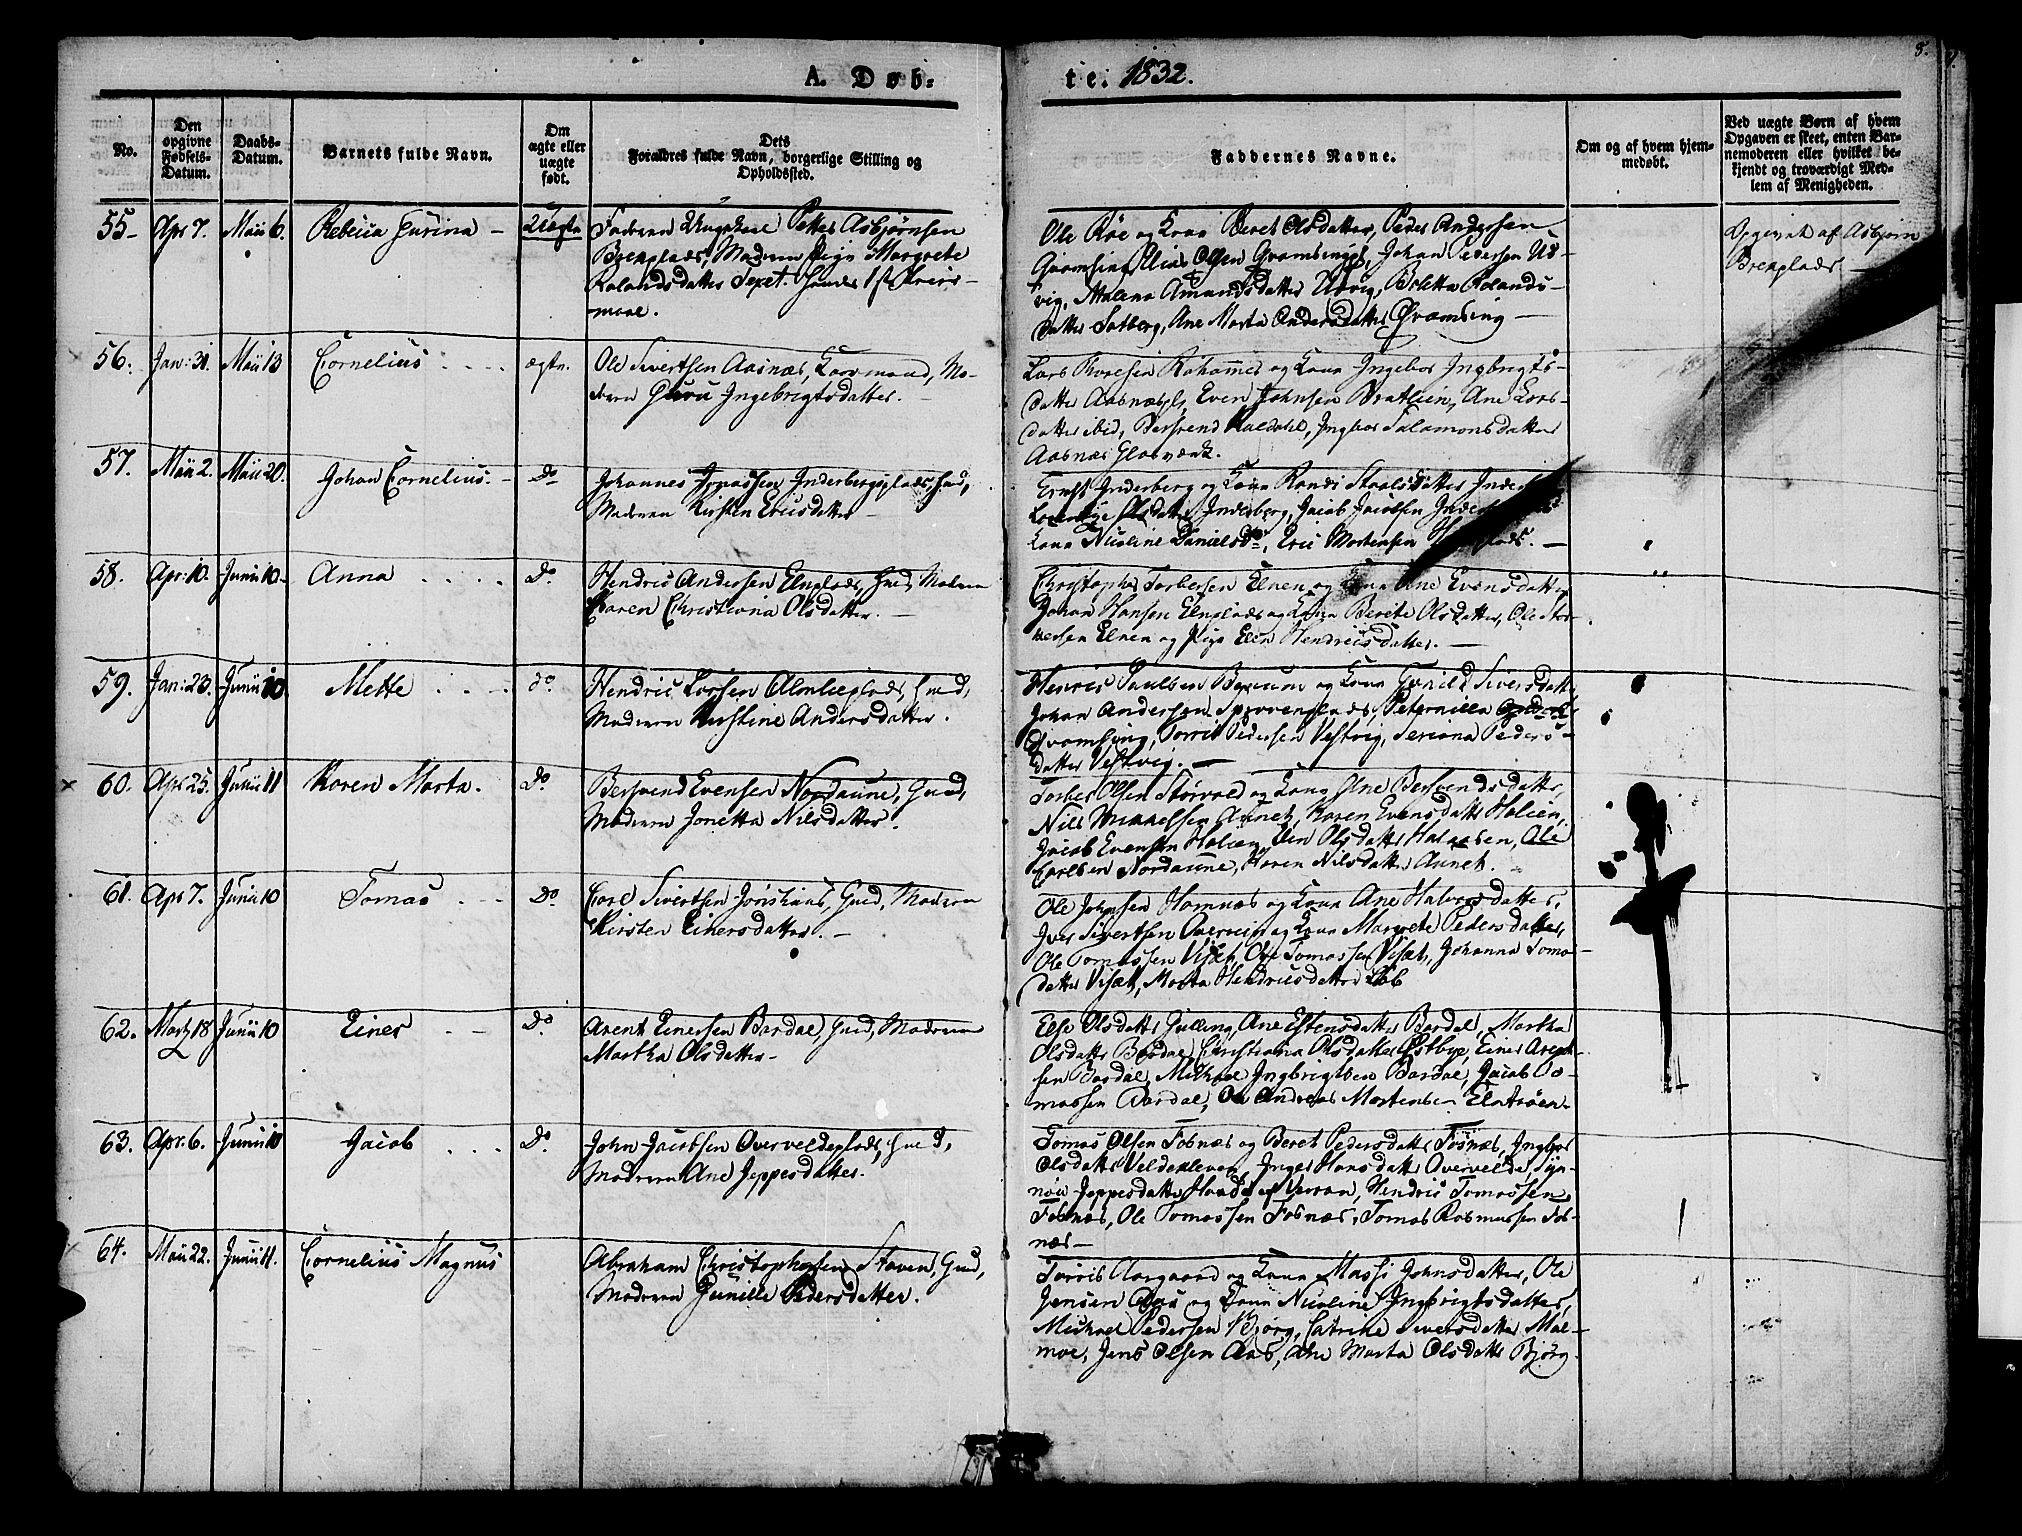 A. Døb=
te. 1832.
8.
No.
Den opgivne Fødsels-Datum.
Daabs-Datum.
Barnets fulde Navn.
Om ægte eller uægte født.
Dets Forældres fulde Navn, borgerlige Stilling og Opholdssted.
Faddernes Navne.
Om og af hvem hjemmedøbt.
Ved uægte Børn af hvem Opgaven er skeet, enten Barnemoderen eller hvilket bekjendt og troværdigt Medlem af Menigheden.
55 Apr 7. Maii 6. Rebecca Gurina Uægte
Faderen Ungkarl Petter Asbjørnsen
Brekplads, Moderen Pige Margrete
Rolandsdatter Sexet. Hendes 1st Leiers-
maal.
Ole Røe og Kona Beret Olsdatter, Peder Andersen
Qvamsing, Elias Olsen Qvamsingpl, Johan Pedersen Ud-
vig, Malena Amundsdatter Udvig, Beletta Rolands-
datter Solberg, Ane Marta Andersdatter Qvamsing
Opgivet af Asbjørn
Brekplads
56. Jan: 31. Maii 13 Cornelius ægte.
Ole Sivertsen Aasnæs, Mo-
deren Guru Ingebrigtsdatter.
Lars Roelsen Rohammer og Kona Ingebor Ingbrigts-
datter Aasnæspl, Even Johnsen Bratlien, Ane Lars-
datter ibid, Bersvend Kaldahl, Ingbor Salamonsdatter
Aasnæs Glasværk.
57. Maii 2. Maii 20. Johan Cornelius. Do
Johannes Jonassen Inderbergsplads, Gmd,
Moderen Kirsten Ericsdatter
Ernst Inderberg og Kona Randi Staalsdatter
Olsdatter Inderberg, Jacob Jacobsen
Kona Nicoline Danielsdr, Eric Mortensen
58. Apr: 10. Junii 10 Anna Do
Hendric Andersen Elnplads, Gmd, Moderen
Karen Christiana Olsdatter.
Christopher Torbersen Elnen og Kona Ane Evensdatter,
Johan Hansen Elnplads og Kona Berete Olsdatter, Ole Tor-
bersen Elnen og Pige Elen Hendricsdatter.
59. Jan: 23. Junii 10 Mette do.
Hendric Larsen Almlieplads, Gmd,
Moderen Kirstine Andersdatter.
Henric Paulsen Bærum og Kona Gunild Siversdatter,
Johan Andersen, Peternilla
Qvamsing, Torris Pedersen Vestvig, Seriana Peders-
datter Vestvig.
60. Apr 25. Junii 11 Karen Marta. Do
Bersvend Evensen Nordaune, Gmd,
Moderen Jonetta Nilsdatter.
Torber Olsen Størvold og Kona Ane Bersvendsdatter,
Nils Mikkelsen Aunet, Karen Evensdatter Holien,
Jacob Evensen Holien, Elen Olsdatter Halaasen, Ole
Carlsen Nordaune, Karen Nilsdatter Aunet.
61. Apr 7. Junii 10 Tomas Do
Carl Sivertsen Jørshaus, Gmd, Moderen
Kirsten Einersdatter.
Ole Johnsen Hamnæs og Kona Ane Halvorsdatter,
Iver Sivertsen Overrein og Kona Margrete Pedersdatter,
Ole Tomassen Viset, Ole Tomassen Viset, Johanna Tomas-
datter Viset, Marta Hendricsdatter
62. Marts 18 Junii 10 Einer Do.
Arent Einersen Bardal, Gmd, Moderen
Martha Olsdatter
Else Olsdatter Gulling, Ane Estensdatter Bardal, Martha
Olsdatter Bardal, Christiana Olsdatter Østbye, Einer Arent-
sen Bardal, Mikkal Ingbrigtsen Bardal, Jacob To-
massen Bardal, Ole Andreas Mortensen Elntrøen.
63. Apr. 6. Junii 10 Jacob Do
John Jacobsen Overveldeplads, Gmd,
Moderen Ane Jeppesdatter.
Tomas Olsen Fosnæs og Beret Pedersdatter Fosnæs, Ingbor
Olsdatter Veldekleven, Inger Hansdatter Overvelde, Syn-
nøv Jeppesdatter af Verran, Hendric Tomassen
Fosnæs, Ole Tomassen Fosnæs, Tomas Rasmussen Fos-
næs
64. Maii 22. Junii 11. Cornelius Magnus
Abraham Christophersen Staven, Gmd,
Moderen Gunille Pedersdatter.
Torris Aargaard og Kona Massi Johnsdatter, Ole
Jensen Aas og Kona Nicoline Ingbrigtsdatter,
Mickal Pedersen Bjørg, Catrine Siversdatter Mal-
moe, Jens Olsen Aas, Ane Marta Olsdatter Bjørg.